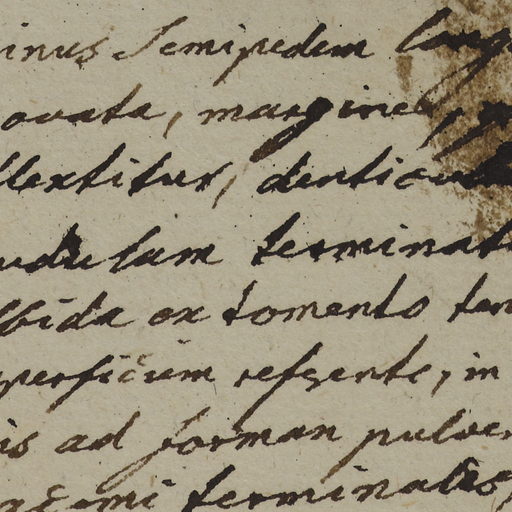 inus Semipedem long
ovata, margine,
flextitur, denticul
udulam terminat
lbida ex tomento ten
perficium referente, in
is ad forman pulver
racemi terminales,